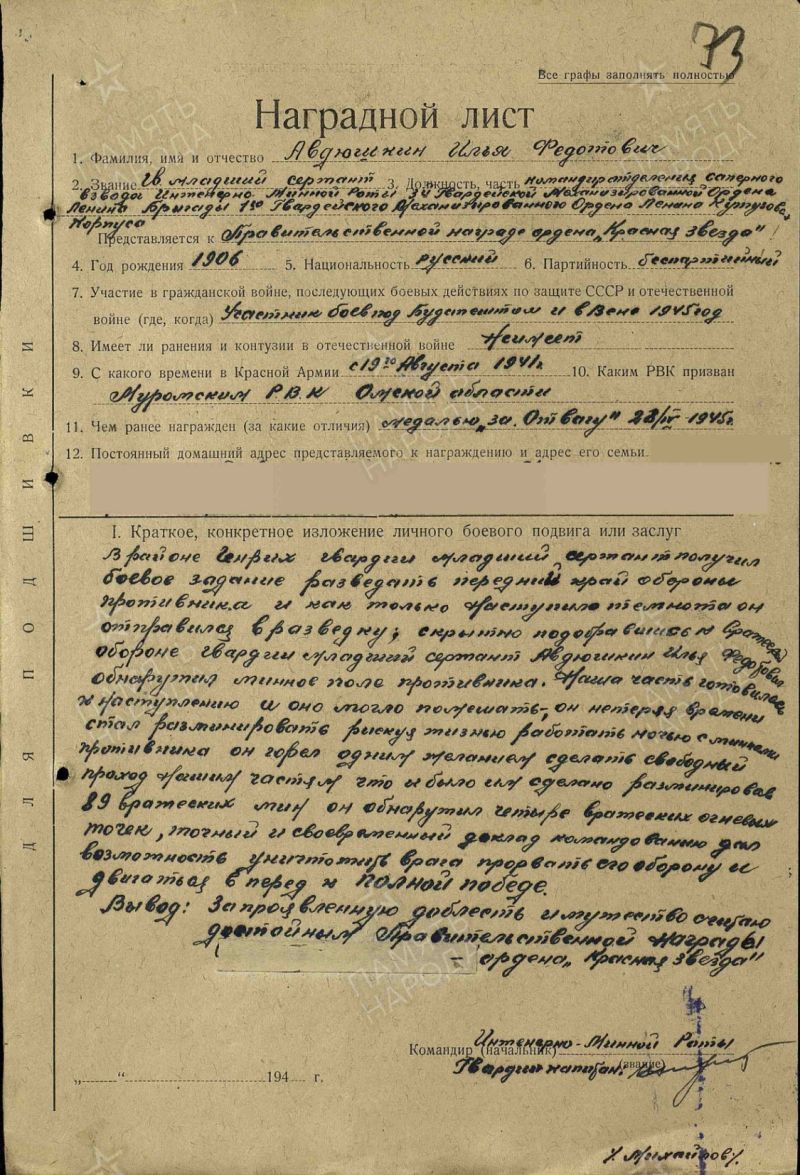 73
Все графы заполнять полностью
Наградной лист
1. Фамилия, имя и отчество Авдюшкин Илья Федотович
2. Звание Гв младший сержант 3. Должность, часть командир отделения саперного
взвода Инженерно-Минной Роты Гвардейской Механизированной Ордена
Ленина Бригады 1го Гвардейского Механизированного Ордена Ленина Кутузова
Корпуса
Представляется к Правительственной награде ордена „Красная звезда"
4. Год рождения 1906 5. Национальность русский 6. Партийность беспартийный
7. Участие в гражданской войне, последующих боевых действиях по защите СССР и отечественной
войне (где, когда) Участник боев под Будапештом и в Вене 1945 год
8. Имеет ли ранения и контузии в отечественной войне Неимеет
9. С какого времени в Красной Армии с 19го Августа 1941г. 10. Каким РВК призван
Муромским Р.В.К Омской области
11. Чем ранее награжден (за какие отличия) медалью „за Отвагу" 1945г.
12. Постоянный домашний адрес представляемого к награждению и адрес его семьи
I. Краткое, конкретное изложение личного боевого подвига или заслуг
В районе Генрих гвардии младший сержант получил
боевое задание разведать передний край обороны
противника и как только наступило темнота он
отправился в разведку, скрытно подобравшись к вражеской
обороне гвардии младший сержант Авдюшкин Илья Федотович
обнаружил минное поле противника. Наша часть готовилась
к наступлению и оно могло помешать, он нетеряя времени
стал разминировать рискуя жизнью работать ночью с минами
противника он горел одним желанием сделать свободный
проход нашим частям что и было им сделано разминировав
89 вражеских мин он обнаружил четыре вражеских огневых
точек, точный и своевременный доклад командованию дал
возможность уничтожив врага прорвать его оборону и
двигаться вперед к полной победе.
Вывод: За проявленную доблесть и мужество считаю
достойным Правительственной Награды
– ордена „Красная звезда"
Командир (начальник) Инженерно-Минной Роты
Гвардии капитан (звание)
„ " 194 г.
/ Михайлов /
ДЛЯ ПОДШИВКИ
ПАМЯТЬ
НАРОДА